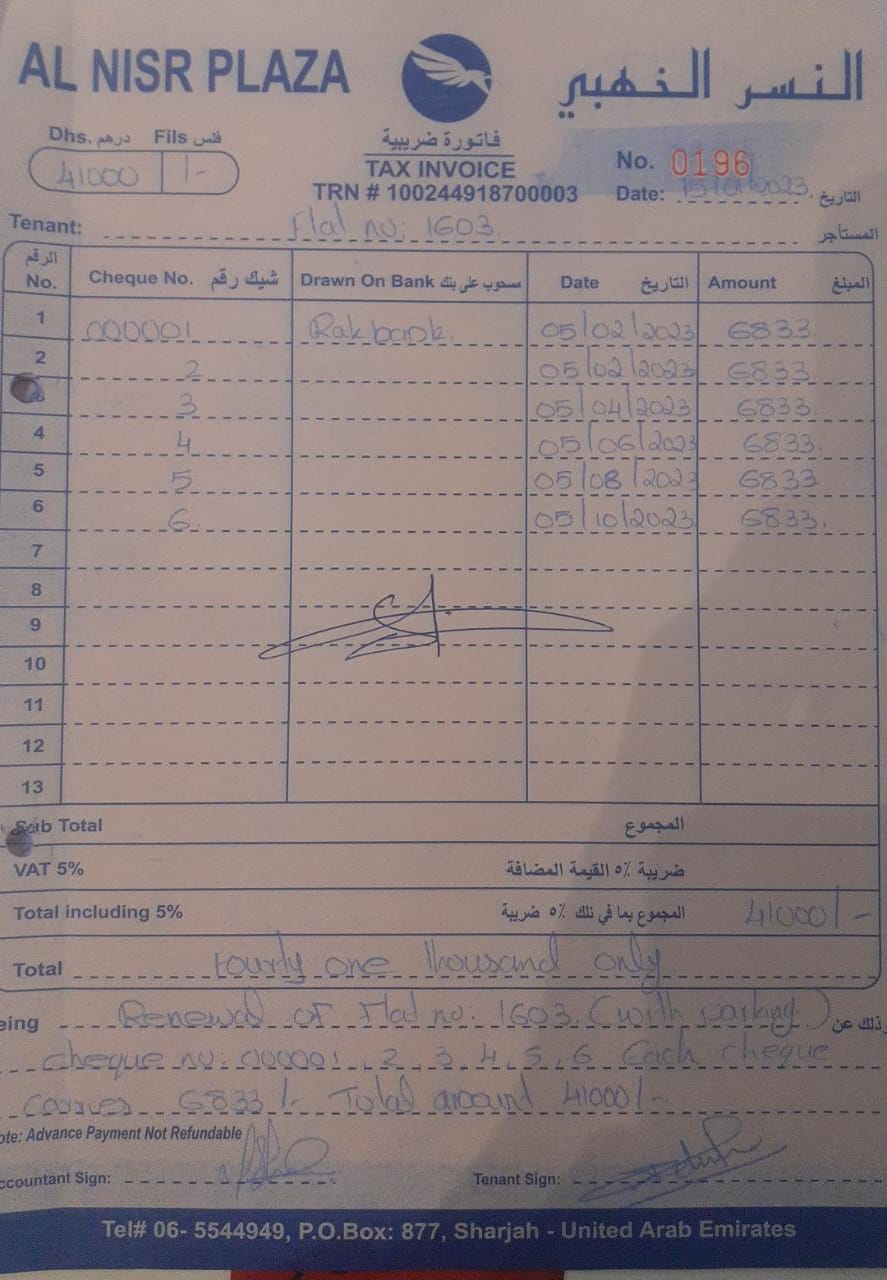 AL NISR PLAZA
النسر الذهبي
Dhs. درهم Fils فلس
41000 /-
فاتورة ضريبية
TAX INVOICE
TRN # 100244918700003
No. 0196
Date: 15/01/2023 التاريخ
Tenant: Flat no: 1603. المستأجر
الرقم No. Cheque No. شيك رقم Drawn On Bank مسحوب على بنك Date التاريخ Amount المبلغ
1 000001 Rakbank. 05/02/2023 6833.
2 2 05/02/2023 6833
3 05/04/2023 6833.
4 4 05/06/2023 6833.
5 5 05/08/2023 6833
6 6. 05/10/2023 6833.
7
8
9
10
11
12
13
Sub Total المجموع
VAT 5% ضريبة ٥٪ القيمة المضافة
Total including 5% المجموع بما في ذلك ٥٪ ضريبة 41000/-
Total Fourty one thousand only
eing Renewal of Flat no: 1603. (with parking) وذلك عن
cheque no: 000001, 2, 3, 4, 5, 6 Each cheque
carries 6833/- Total amount 41000/-
ote: Advance Payment Not Refundable
ccountant Sign: Tenant Sign:
Tel# 06- 5544949, P.O.Box: 877, Sharjah - United Arab Emirates